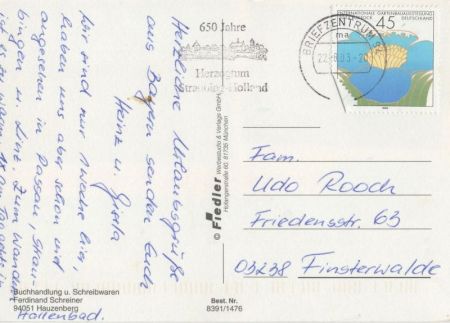 Herzliche Urlaubsgrüße
aus Bayern senden Euch
Heinz u. Gisela
Wir sind nur 1 Woche hier,
haben uns aber schon viel
angesehen in Passau, Strau-
bingen u. Linz. Zum Wandern
ist es zu warm.
Hallenbad.
650 Jahre
Herzogtum
Straubing-Holland
BRIEFZENTRUM
ma
INTERNATIONALE GARTENBAUAUSSTELLUNG
ROSTOCK
DEUTSCHLAND
45
© Fiedler Werbestudio & Verlags GmbH
81735 München
Fam.
Udo Rooch
Friedensstr. 63
03238 Finsterwalde
Buchhandlung u. Schreibwaren
Ferdinand Schreiner
94051 Hauzenberg
Best. Nr.
8391/1476